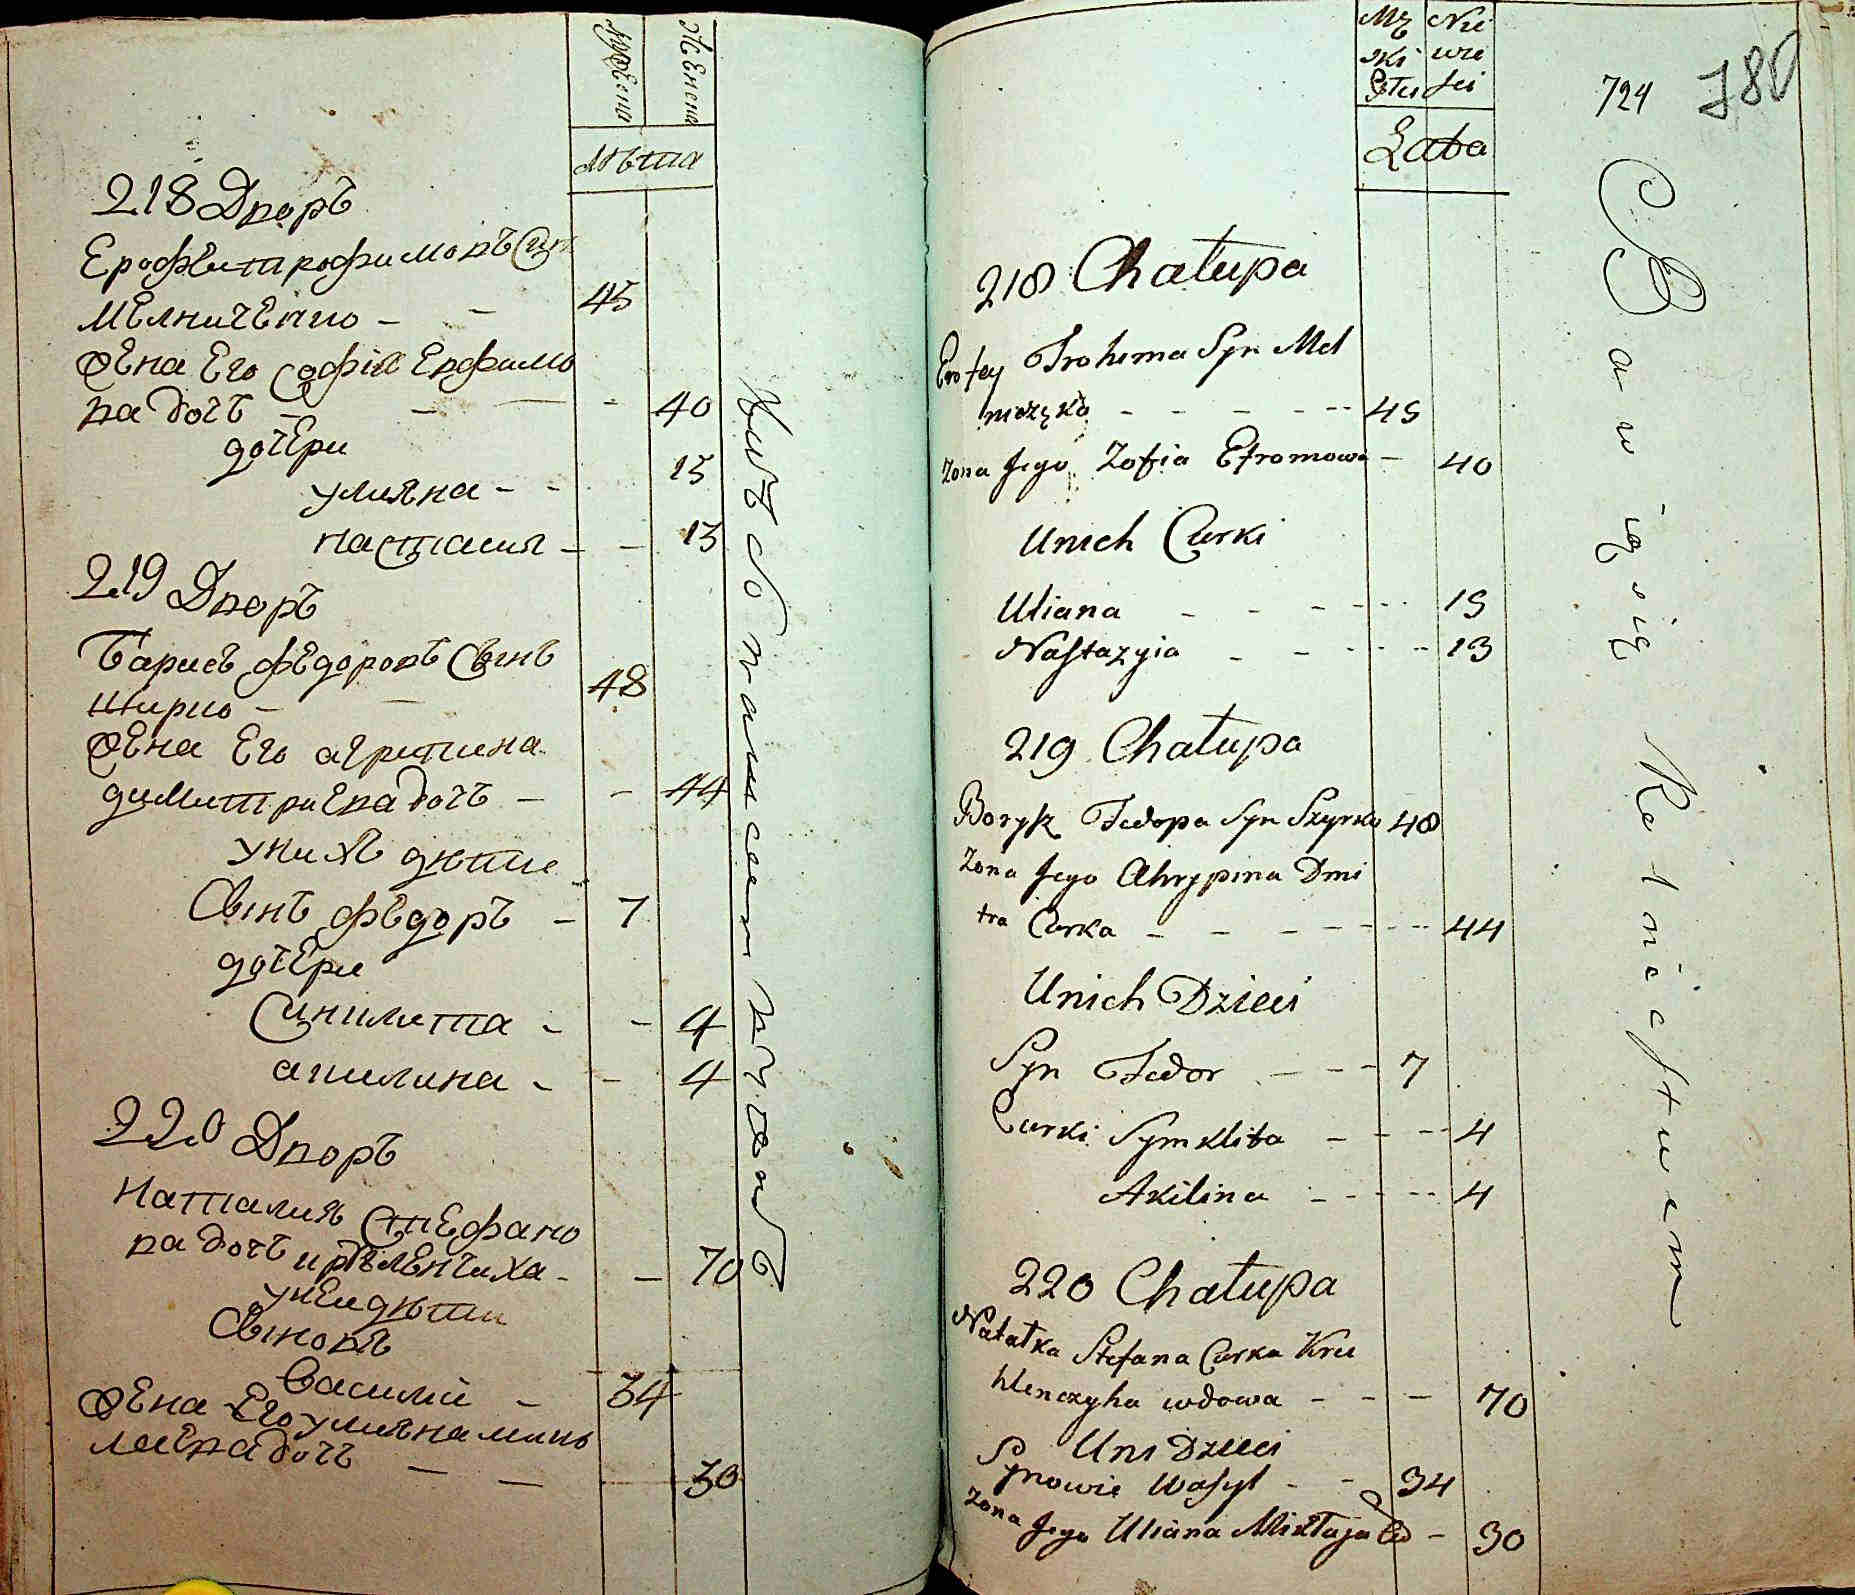 мужеска
женска
лѣта
218 Дворъ
Ерофѣи трофимовъ Сын
мелниченко - - 45
жена Его Софія Ефримо
ва дочь - - - 40
дочери
улияна - - 15
настасия - - 13
219 Дворъ
Барисъ фѣдоровъ Сынъ
ширко - - 48
жена Его агрипина
димитриева дочь - - 44
унихъ дѣти
Сынъ фѣдоръ - 7
дочери
Синклита - - 4
акилина - - 4
220 Дворъ
Наталия Стефано
ва дочь - - 70
унеи дѣти
Сыновъ
Василій - 34
жена Его улияна мико
лаева дочь - - 30
Mę Nie
ski wie
Stu sci
Lata
724 780
218 Chałupa
Erofey Trohima Syn Mel
niczęko - - - - - 45
Zona Jego Zofia Efromowa - 40
Unich Curki
Uliana - - - - - 15
Nastazyia - - - - - 13
219 Chałupa
Borysz Fedora Syn Szyrko 48
Zona Jego Ahrypina Dmi
tra Curka - - - - - - 44
Unich Dzieci
Syn Fedor - - - 7
Curki Symklita - - - 4
Akilina - - - - 4
220 Chałupa
Natałka Stefana Curka Kru
hlenczyha wdowa - - - 70
Uni Dzieci
Synowie Wasyl - - 34
Zona Jego Uliana Mikłaja Cu - 30
Bawią się Rolnictwem